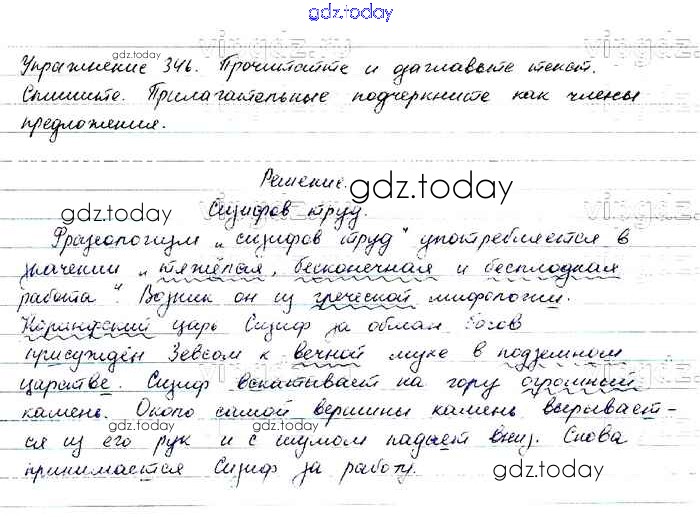 gdz.today
Упражнение 346. Прочитайте и озаглавьте текст.
Спишите. Прилагательные подчеркните как члены
предложения.
Решение.
Сизифов труд.
Фразеологизм „сизифов труд" употребляется в
значении „тяжёлая, бесконечная и бесплодная
работа". Возник он из греческой мифологии.
Коринфский царь Сизиф за обман богов
присуждён Зевсом к вечной муке в подземном
царстве. Сизиф вскатывает на гору огромный
камень. Около самой вершины камень вырывает-
ся из его рук и с шумом падает вниз. Снова
принимается Сизиф за работу.
gdz.today
gdz.today
gdz.today
gdz.today
gdz.today
gdz.today
gdz.today